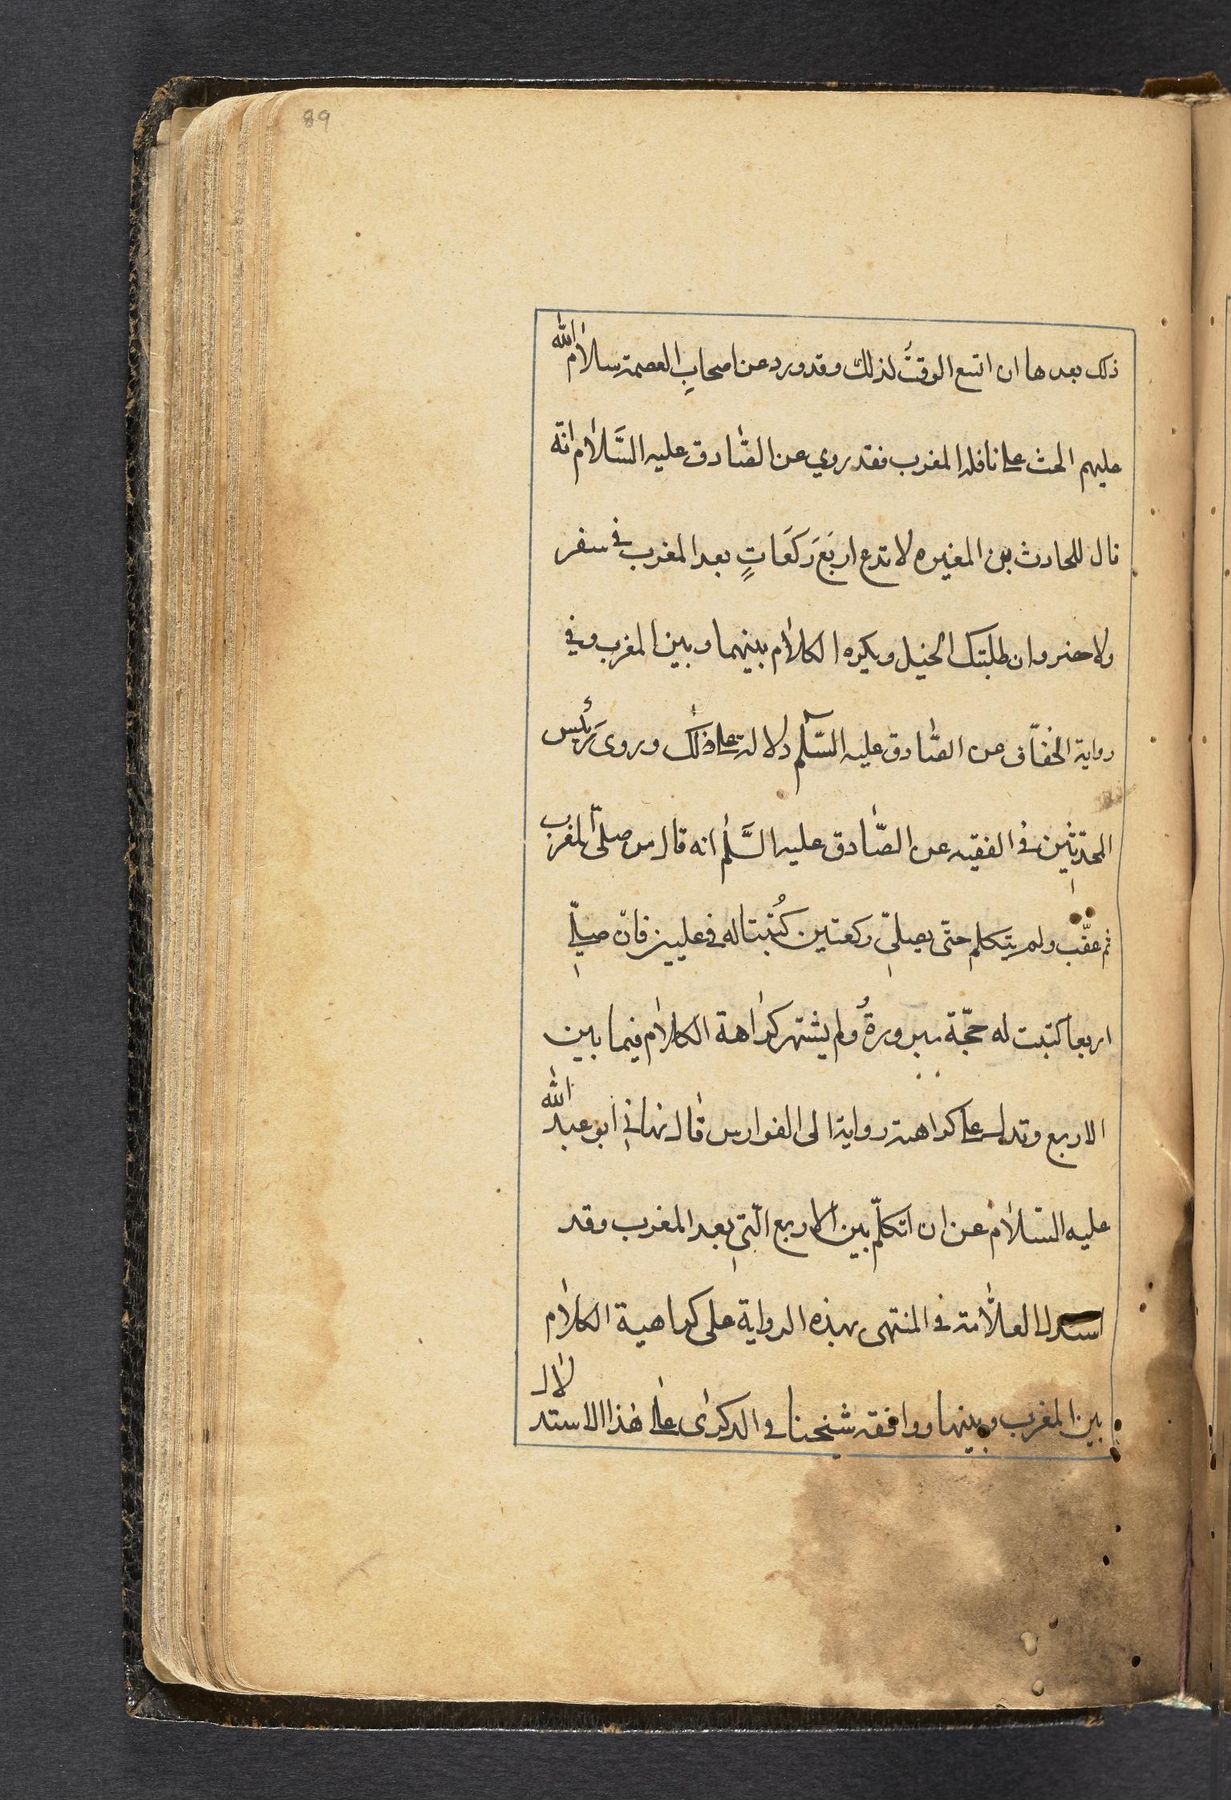 89
ذلك بعدها ان اتسع الوقتُ لذلك وقد ورد عن اصحابِ العصمة سلام الله
عليهم الحث على نافلة المغرب فقد روي عن الصّادق عليه السَّلام انّه
قال للحارث بن المغيره لا تدع اربَعَ رَكَعَاتٍ بعد المغرب في سفر
ولا حضر وان طلبتك الخيل ويكره الكلام بينهما وبين المغرب وفي
رواية الخفّاف عن الصّادق عليه السّلم دلالة على ذلك وروى رَئيس
المحدّثين في الفقيه عن الصّادق عليه السَّلم انه قال من صلّى المغرب
ثم عقّب ولم يتكلم حتّى يصلّي ركعتين كُتبتا له في عليين فانّ صلّى
اربعا كتبت له حجّة مبرورةُ ولم يشتهر كراهة الكلام فيما بين
الاربع وتدل على كراهته رواية ابى الفوارس قال نهاني ابو عبد الله
عليه السّلام عن ان اتكلّم بين الاربع الّتي بعد المغرب وقد
استدل العلّامة في المنتهى بهذه الرواية على كراهية الكلام
بين المغرب وبينها ووافقه شيخنا في الذكرى على هٰذا الاستدلال